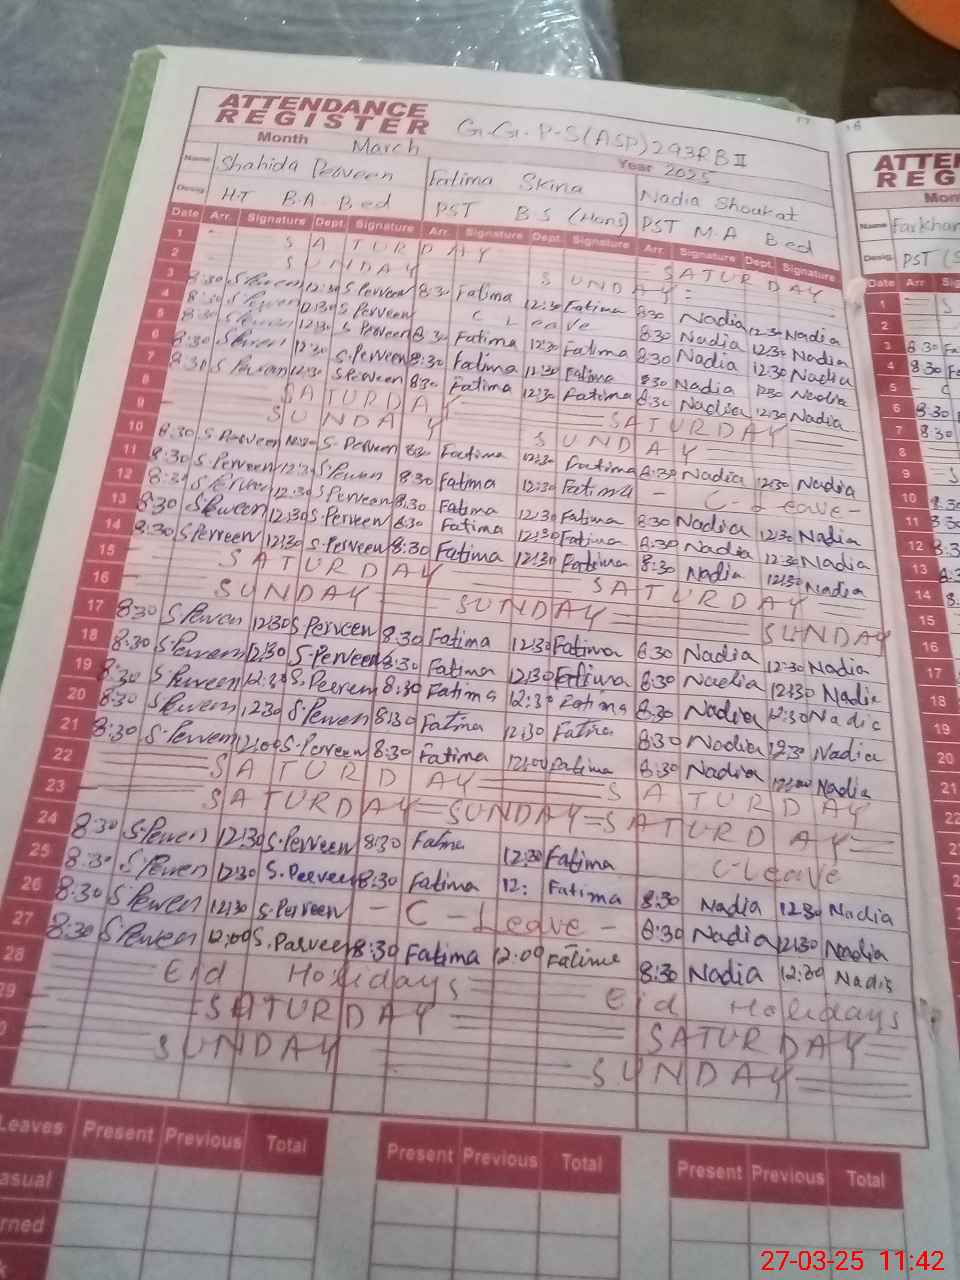 ATTENDANCE REGISTER G.G.P.S(ASP) 293RB II
Month March Year 2025
Name Shahida Perveen Fatima Skina Nadia Shoukat
Desig. H.T B.A. B.ed PST B.S (Hons) PST M.A B.ed
Date Arr. Signature Dept. Signature Arr. Signature Dept. Signature Arr. Signature Dept. Signature
1 SATURDAY SATURDAY
2 SUNDAY SUNDAY
3 8:30 S.Perveen 12:30 S.Perveen 8:30 Fatima 12:30 Fatima 8:30 Nadia 12:30 Nadia
4 8:30 S.Perveen 12:30 S.Perveen C Leave 8:30 Nadia 12:30 Nadia
5 8:30 S.Perveen 12:30 S.Perveen 8:30 Fatima 12:30 Fatima 8:30 Nadia 12:30 Nadia
6 8:30 S.Perveen 12:30 S.Perveen 8:30 Fatima 12:30 Fatima 8:30 Nadia 12:30 Nadia
7 8:30 S.Perveen 12:30 S.Perveen 8:30 Fatima 12:30 Fatima 8:30 Nadia 12:30 Nadia
8 SATURDAY SATURDAY
9 SUNDAY SUNDAY
10 8:30 S.Perveen 12:30 S.Perveen 8:30 Fatima 12:30 Fatima 8:30 Nadia 12:30 Nadia
11 8:30 S.Perveen 12:30 S.Perveen 8:30 Fatima 12:30 Fatima - C-Leave-
12 8:30 S.Perveen 12:30 S.Perveen 8:30 Fatima 12:30 Fatima 8:30 Nadia 12:30 Nadia
13 8:30 S.Perveen 12:30 S.Perveen 8:30 Fatima 12:30 Fatima 8:30 Nadia 12:30 Nadia
14 8:30 S.Perveen 12:30 S.Perveen 8:30 Fatima 12:30 Fatima 8:30 Nadia 12:30 Nadia
15 SATURDAY SATURDAY
16 SUNDAY SUNDAY SUNDAY
17 8:30 S.Perveen 12:30 S.Perveen 8:30 Fatima 12:30 Fatima 8:30 Nadia 12:30 Nadia
18 8:30 S.Perveen 12:30 S.Perveen 8:30 Fatima 12:30 Fatima 8:30 Nadia 12:30 Nadia
19 8:30 S.Perveen 12:30 S.Perveen 8:30 Fatima 12:30 Fatima 8:30 Nadia 12:30 Nadia
20 8:30 S.Perveen 12:30 S.Perveen 8:30 Fatima 12:30 Fatima 8:30 Nadia 12:30 Nadia
21 8:30 S.Perveen 12:00 S.Perveen 8:30 Fatima 12:00 Fatima 8:30 Nadia 12:00 Nadia
22 SATURDAY SATURDAY
23 SATURDAY SUNDAY SATURDAY
24 8:30 S.Perveen 12:30 S.Perveen 8:30 Fatima 12:30 Fatima C-Leave
25 8:30 S.Perveen 12:30 S.Perveen 8:30 Fatima 12: Fatima 8:30 Nadia 12:30 Nadia
26 8:30 S.Perveen 12:30 S.Perveen - C-Leave - 8:30 Nadia 12:30 Nadia
27 8:30 S.Perveen 12:00 S.Parveen 8:30 Fatima 12:00 Fatima 8:30 Nadia 12:30 Nadia
28 Eid Holidays Eid Holidays
29 SATURDAY SATURDAY
SUNDAY SUNDAY
Leaves Present Previous Total Present Previous Total Present Previous Total
17
16
Name Farkhan
Desig. PST
Date Arr
1
2
3 8:30
4 8:30
5
6 8:30
7 8:30
8
9
10 8:30
11
12
13
14
15
16
17
18
19
20
21
27-03-25 11:42